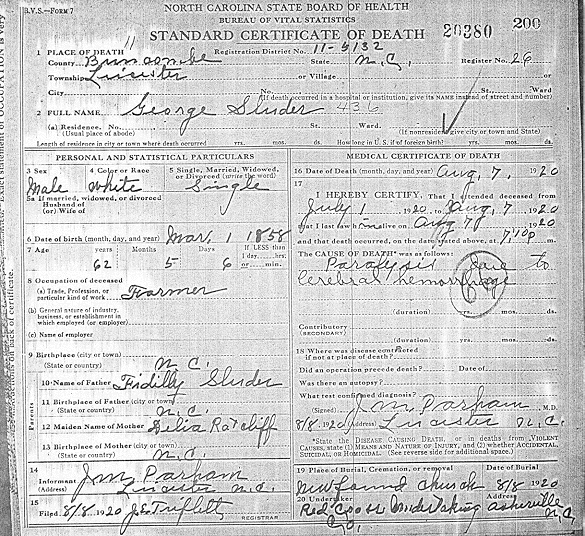 NORTH CAROLINA STATE BOARD OF HEALTH
BUREAU OF VITAL STATISTICS
B.V.S.—FORM 7
STANDARD CERTIFICATE OF DEATH 20380 200
1 PLACE OF DEATH Registration District No. 11-5132
County Buncombe State N.C. Register No. 26
Township Liecister or Village
City No. St. Ward
(If death occurred in a hospital or institution, give its NAME instead of street and number)
2 FULL NAME George Sluder 436
(a) Residence. No. St. Ward.
(Usual place of abode) (If nonresident give city or town and State)
Length of residence in city or town where death occurred yrs. mos. ds. How long in U. S. if of foreign birth? yrs. mos. ds.
PERSONAL AND STATISTICAL PARTICULARS
3 Sex 4 Color or Race 5 Single, Married, Widowed, or Divorced (write the word)
Male White Single
5a If married, widowed, or divorced
Husband of
(or) Wife of
6 Date of birth (month, day, and year) Mar. 1 1858
7 Age years Months Days If LESS than
1 day, hrs.
or min.
62 5 6
8 Occupation of deceased
(a) Trade, Profession, or
particular kind of work Farmer
(b) General nature of industry,
business, or establishment in
which employed (or employer)
(c) Name of employer
9 Birthplace (city or town)
(State or country) N.C.
Parents
10 Name of Father Fidilly Sluder
11 Birthplace of Father (city or town)
(State or country) N.C.
12 Maiden Name of Mother Delia Ratcliff
13 Birthplace of Mother (city or town)
(State or country) N.C.
14
Informant J.M. Parham
(Address) Liecister N.C.
15
Filed 8/8 1920 J.E. Triplett
REGISTRAR
MEDICAL CERTIFICATE OF DEATH
16 Date of Death (month, day, and year) Aug, 7, 1920
17
I HEREBY CERTIFY, That I attended deceased from
July 1 1920 to Aug 7 1920
that I last saw him alive on Aug 7 1920
and that death occurred, on the date stated above, at 7,10p m.
The CAUSE OF DEATH* was as follows:
Paralysis due to
Cerebral hemorrhage
(duration) yrs. mos. ds.
Contributory
(SECONDARY)
(duration) yrs. mos. ds.
18 Where was disease contracted
if not at place of death?
Did an operation precede death? Date of
Was there an autopsy?
What test confirmed diagnosis?
(Signed) J.M. Parham M.D.
8/8 1920 (Address) Liecister N.C.
*State the DISEASE CAUSING DEATH, or in deaths from VIOLENT CAUSES, state (1) MEANS AND NATURE OF INJURY, and (2) whether ACCIDENTAL, SUICIDAL, or HOMICIDAL. (See reverse side for additional space.)
19 Place of Burial, Cremation, or removal Date of Burial
New found church 8/8 1920
20 Undertaker Address
Red Cross Undertaking Co. Asheville N.C.